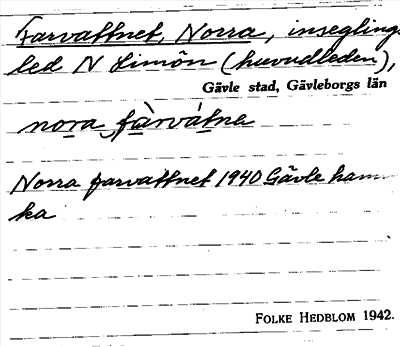 Farvattnet, Norra, inseglings
led N Limön (huvudleden),
Gävle stad, Gävleborgs län
nora fàrvátnə
Norra farvattnet 1940 Gävle hamn
ka
FOLKE HEDBLOM 1942.